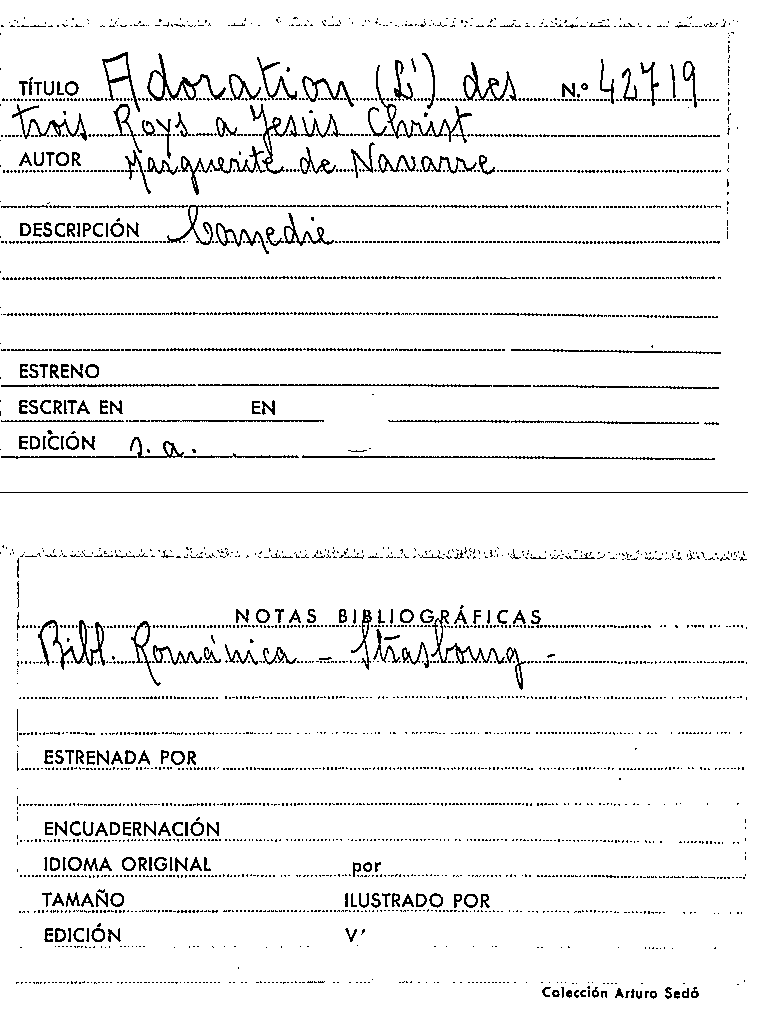 TÍTULO Adoration (L') des N.º 42719
trois Roys a Jesús Christ
AUTOR Marguerite de Navarre
DESCRIPCIÓN Comedie
ESTRENO
ESCRITA EN EN
EDICIÓN s.a.
NOTAS BIBLIOGRÁFICAS
Bibl. Románica - Strasbourg -
ESTRENADA POR
ENCUADERNACIÓN
IDIOMA ORIGINAL por
TAMAÑO ILUSTRADO POR
EDICIÓN V'
Colección Arturo Sedó